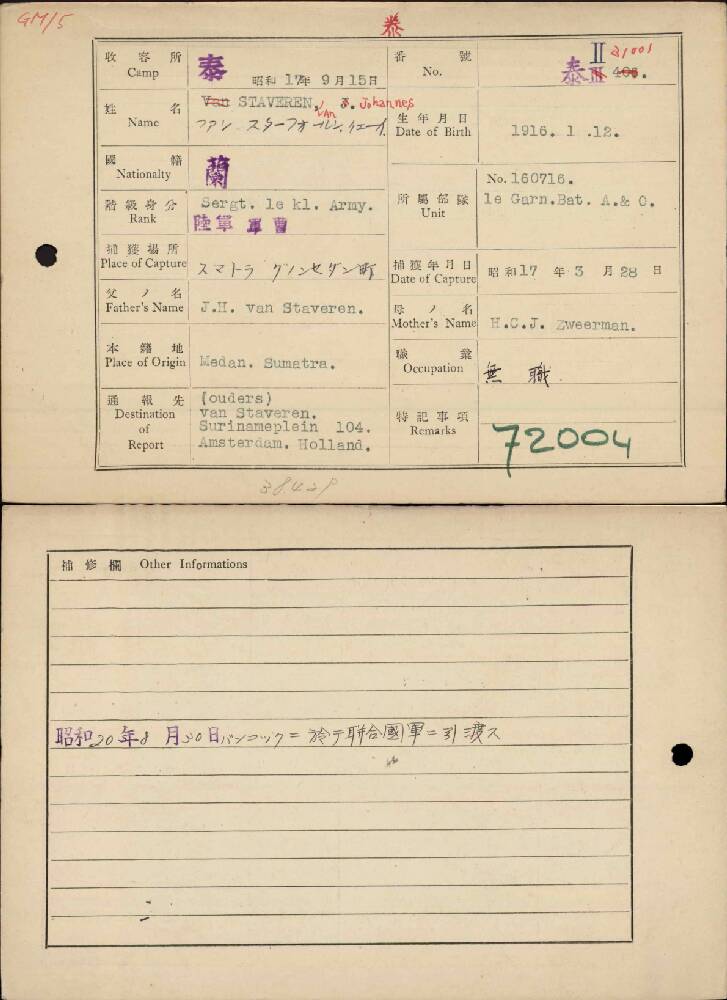 GM/5
泰
收容所
Camp
泰
昭和17年 9月15日
番號
No.
II 21001
泰 III 408.
姓名
Name
Van STAVEREN, J. Johannes
VAN
ファン スターフォーレン、イェー、
生年月日
Date of Birth
1916. 1 .12.
國籍
Nationalty
蘭
階級身分
Rank
Sergt. 1e kl. Army.
陸軍 軍曹
所屬部隊
Unit
No. 160716.
1e Garn.Bat. A.& O.
捕獲場所
Place of Capture
スマトラ
捕獲年月日
Date of Capture
昭和17 年 3 月 28 日
父ノ名
Father's Name
J.H. van Staveren.
母ノ名
Mother's Name
H.C.J. Zweerman.
本籍地
Place of Origin
Medan. Sumatra.
職業
Occupation
無職
通報先
Destination
of
Report
(ouders)
van Staveren.
Surinameplein 104.
Amsterdam. Holland.
特記事項
Remarks
72004
補修欄 Other Informations
昭和20年8月30日バンコックニ於テ聯合國軍ニ引渡ス